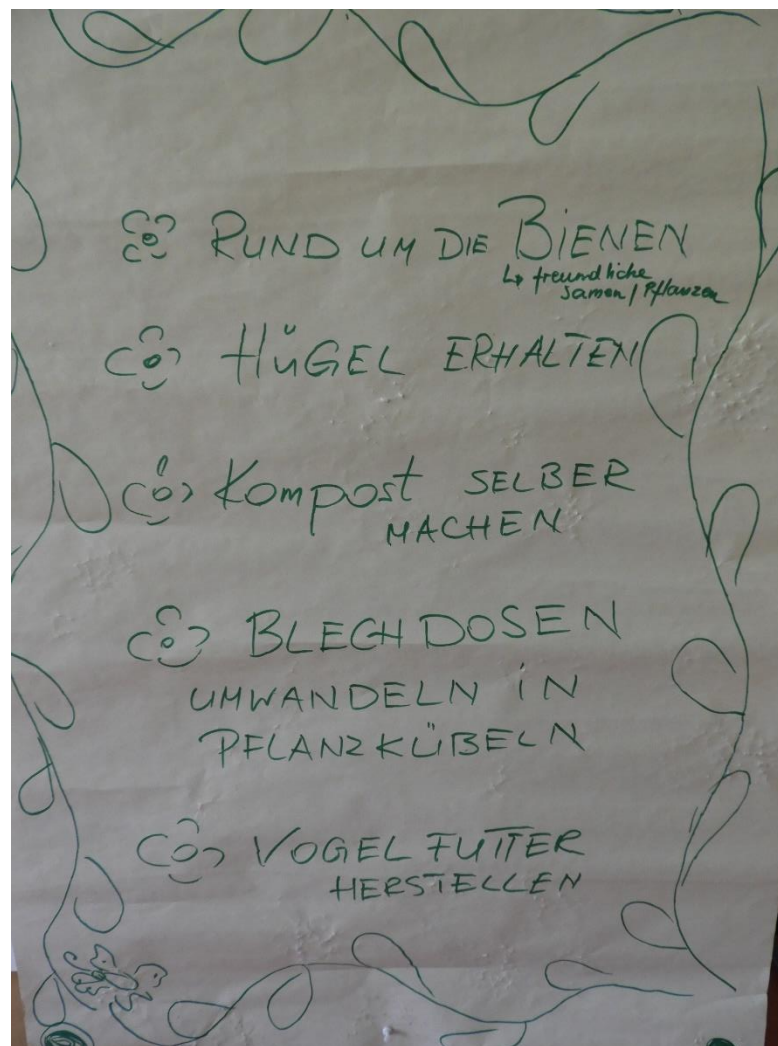 RUND UM DIE BIENEN
↳ freundliche
Samen / Pflanzen
HÜGEL ERHALTEN
Kompost SELBER
MACHEN
BLECHDOSEN
UMWANDELN IN
PFLANZKÜBELN
VOGELFUTTER
HERSTELLEN